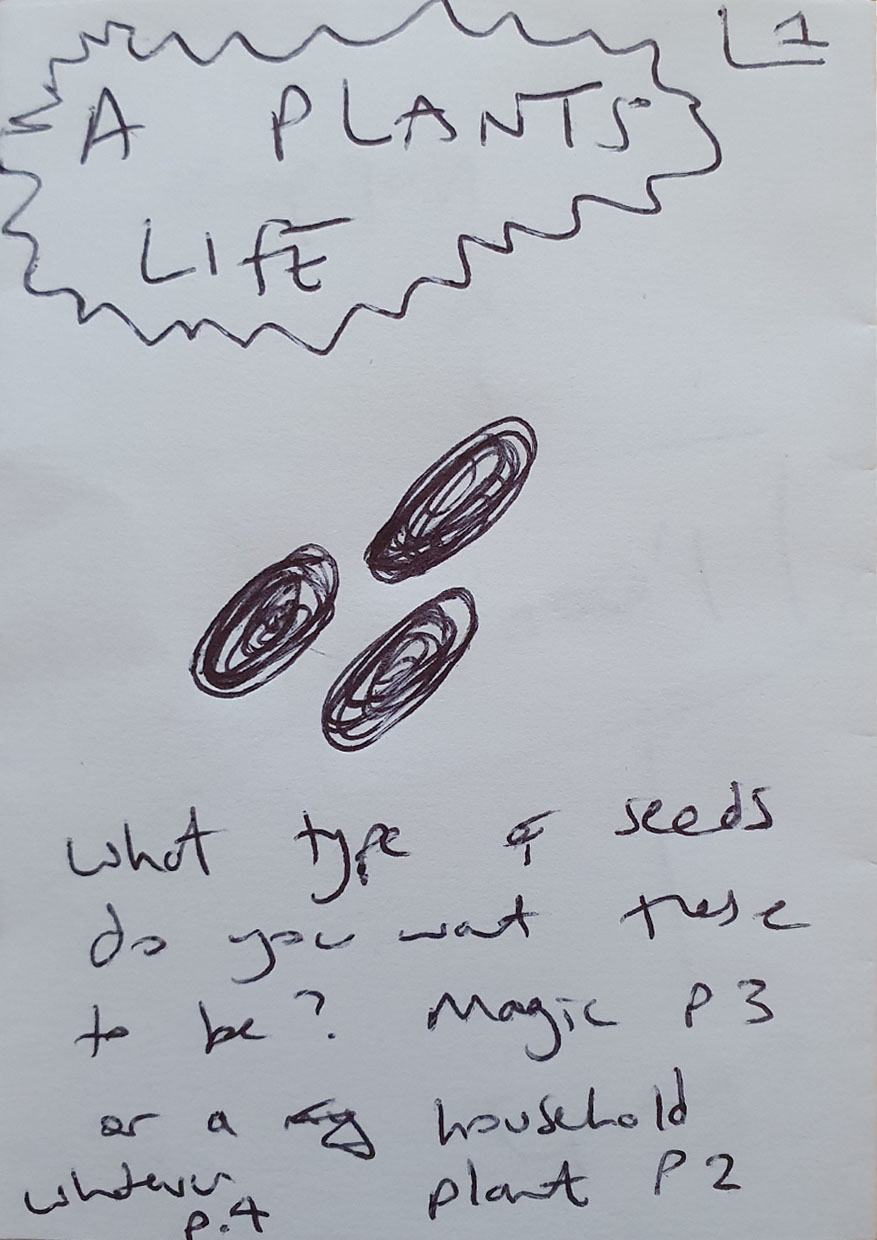 1
A PLANTS
LIFE
What type of seeds
do you want these
to be? Magic P 3
or a household
whatever plant P 2
p.4